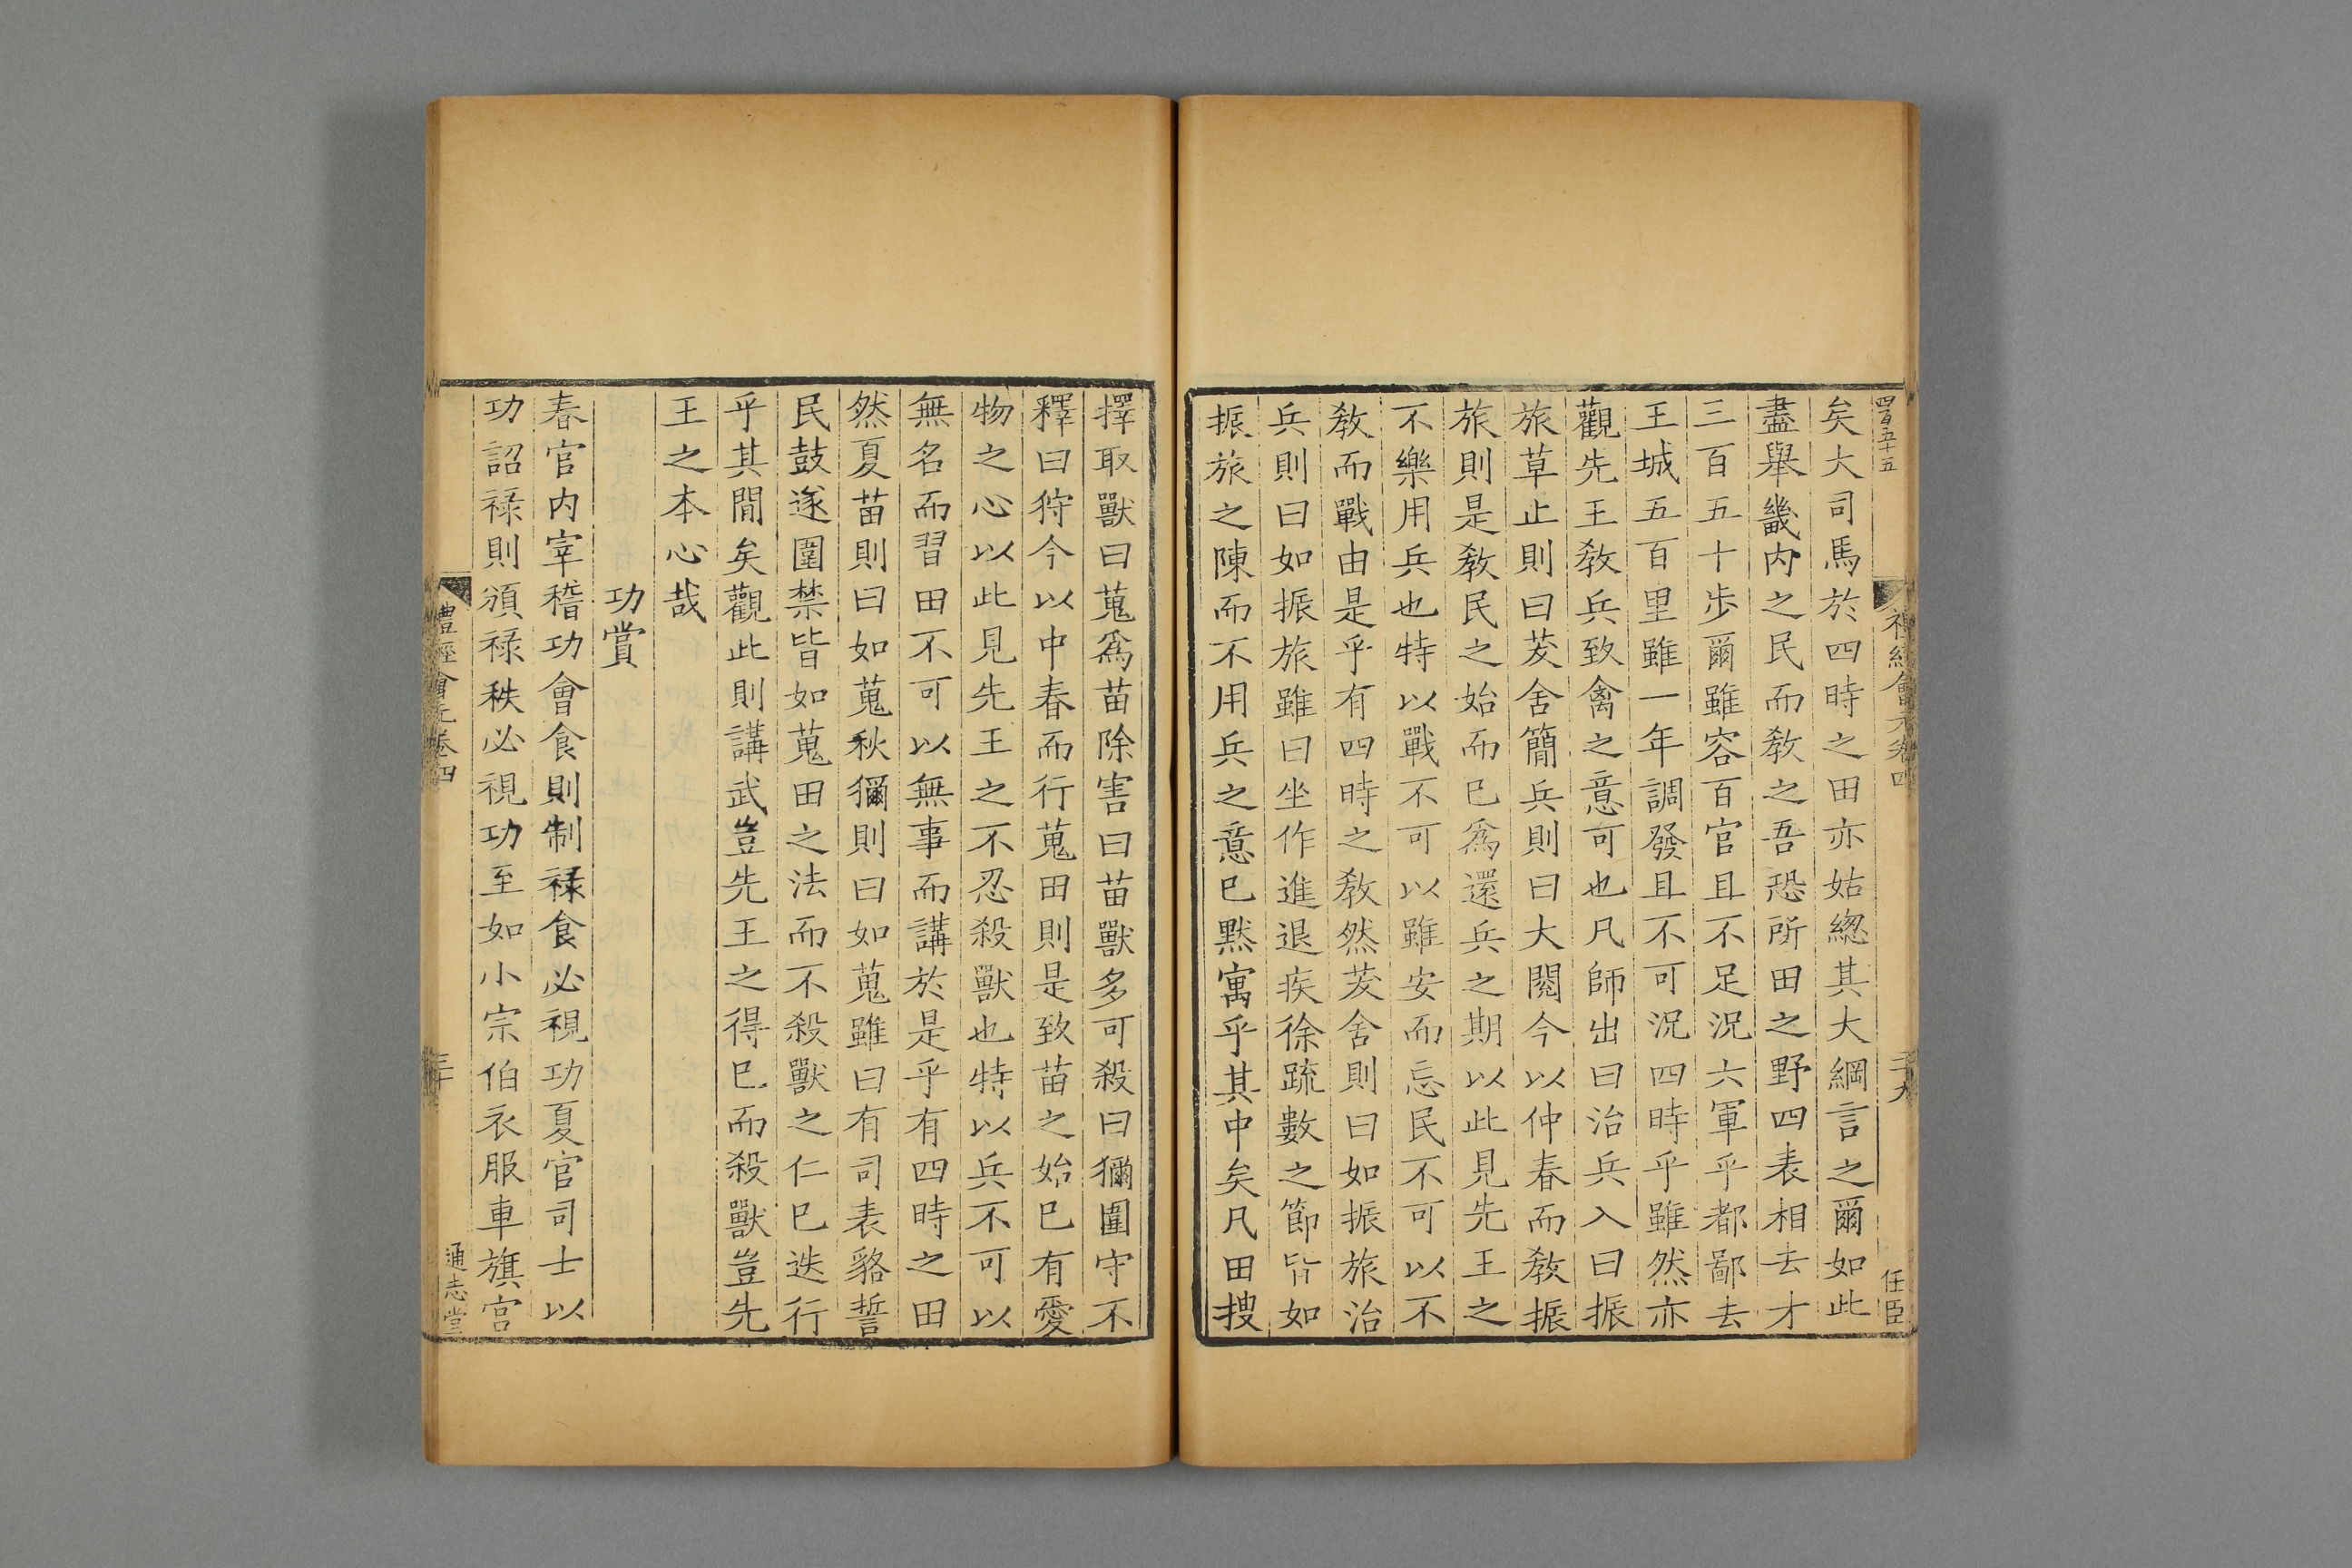 四百五十五
禮經會元卷四
二十九
任臣
矣大司馬於四時之田亦姑緫其大綱言之爾如此
盡舉畿内之民而教之吾恐所田之野四表相去才
三百五十步爾雖容百官且不足況六軍乎都鄙去
王城五百里雖一年調發且不可況四時乎雖然亦
觀先王教兵致禽之意可也凡師出曰治兵入曰振
旅草止則曰茇舍簡兵則曰大閱今以仲春而教振
旅則是教民之始而已爲還兵之期以此見先王之
不樂用兵也特以戰不可以雖安而忘民不可以不
教而戰由是乎有四時之教然茇舍則曰如振旅治
兵則曰如振旅雖曰坐作進退疾徐疏數之節皆如
振旅之陳而不用兵之意已黙寓乎其中矣凡田搜
擇取獸曰蒐爲苗除害曰苗獸多可殺曰獮圍守不
釋曰狩今以中春而行蒐田則是致苗之始已有愛
物之心以此見先王之不忍殺獸也特以兵不可以
無名而習田不可以無事而講於是乎有四時之田
然夏苗則曰如蒐秋獮則曰如蒐雖曰有司表貉誓
民鼓遂圍禁皆如蒐田之法而不殺獸之仁已迭行
乎其閒矣觀此則講武豈先王之得已而殺獸豈先
王之本心哉
功賞
春官内宰稽功會食則制祿食必視功夏官司士以
功詔祿則頒祿秩必視功至如小宗伯衣服車旗宫
禮經會元卷四
三十
通志堂